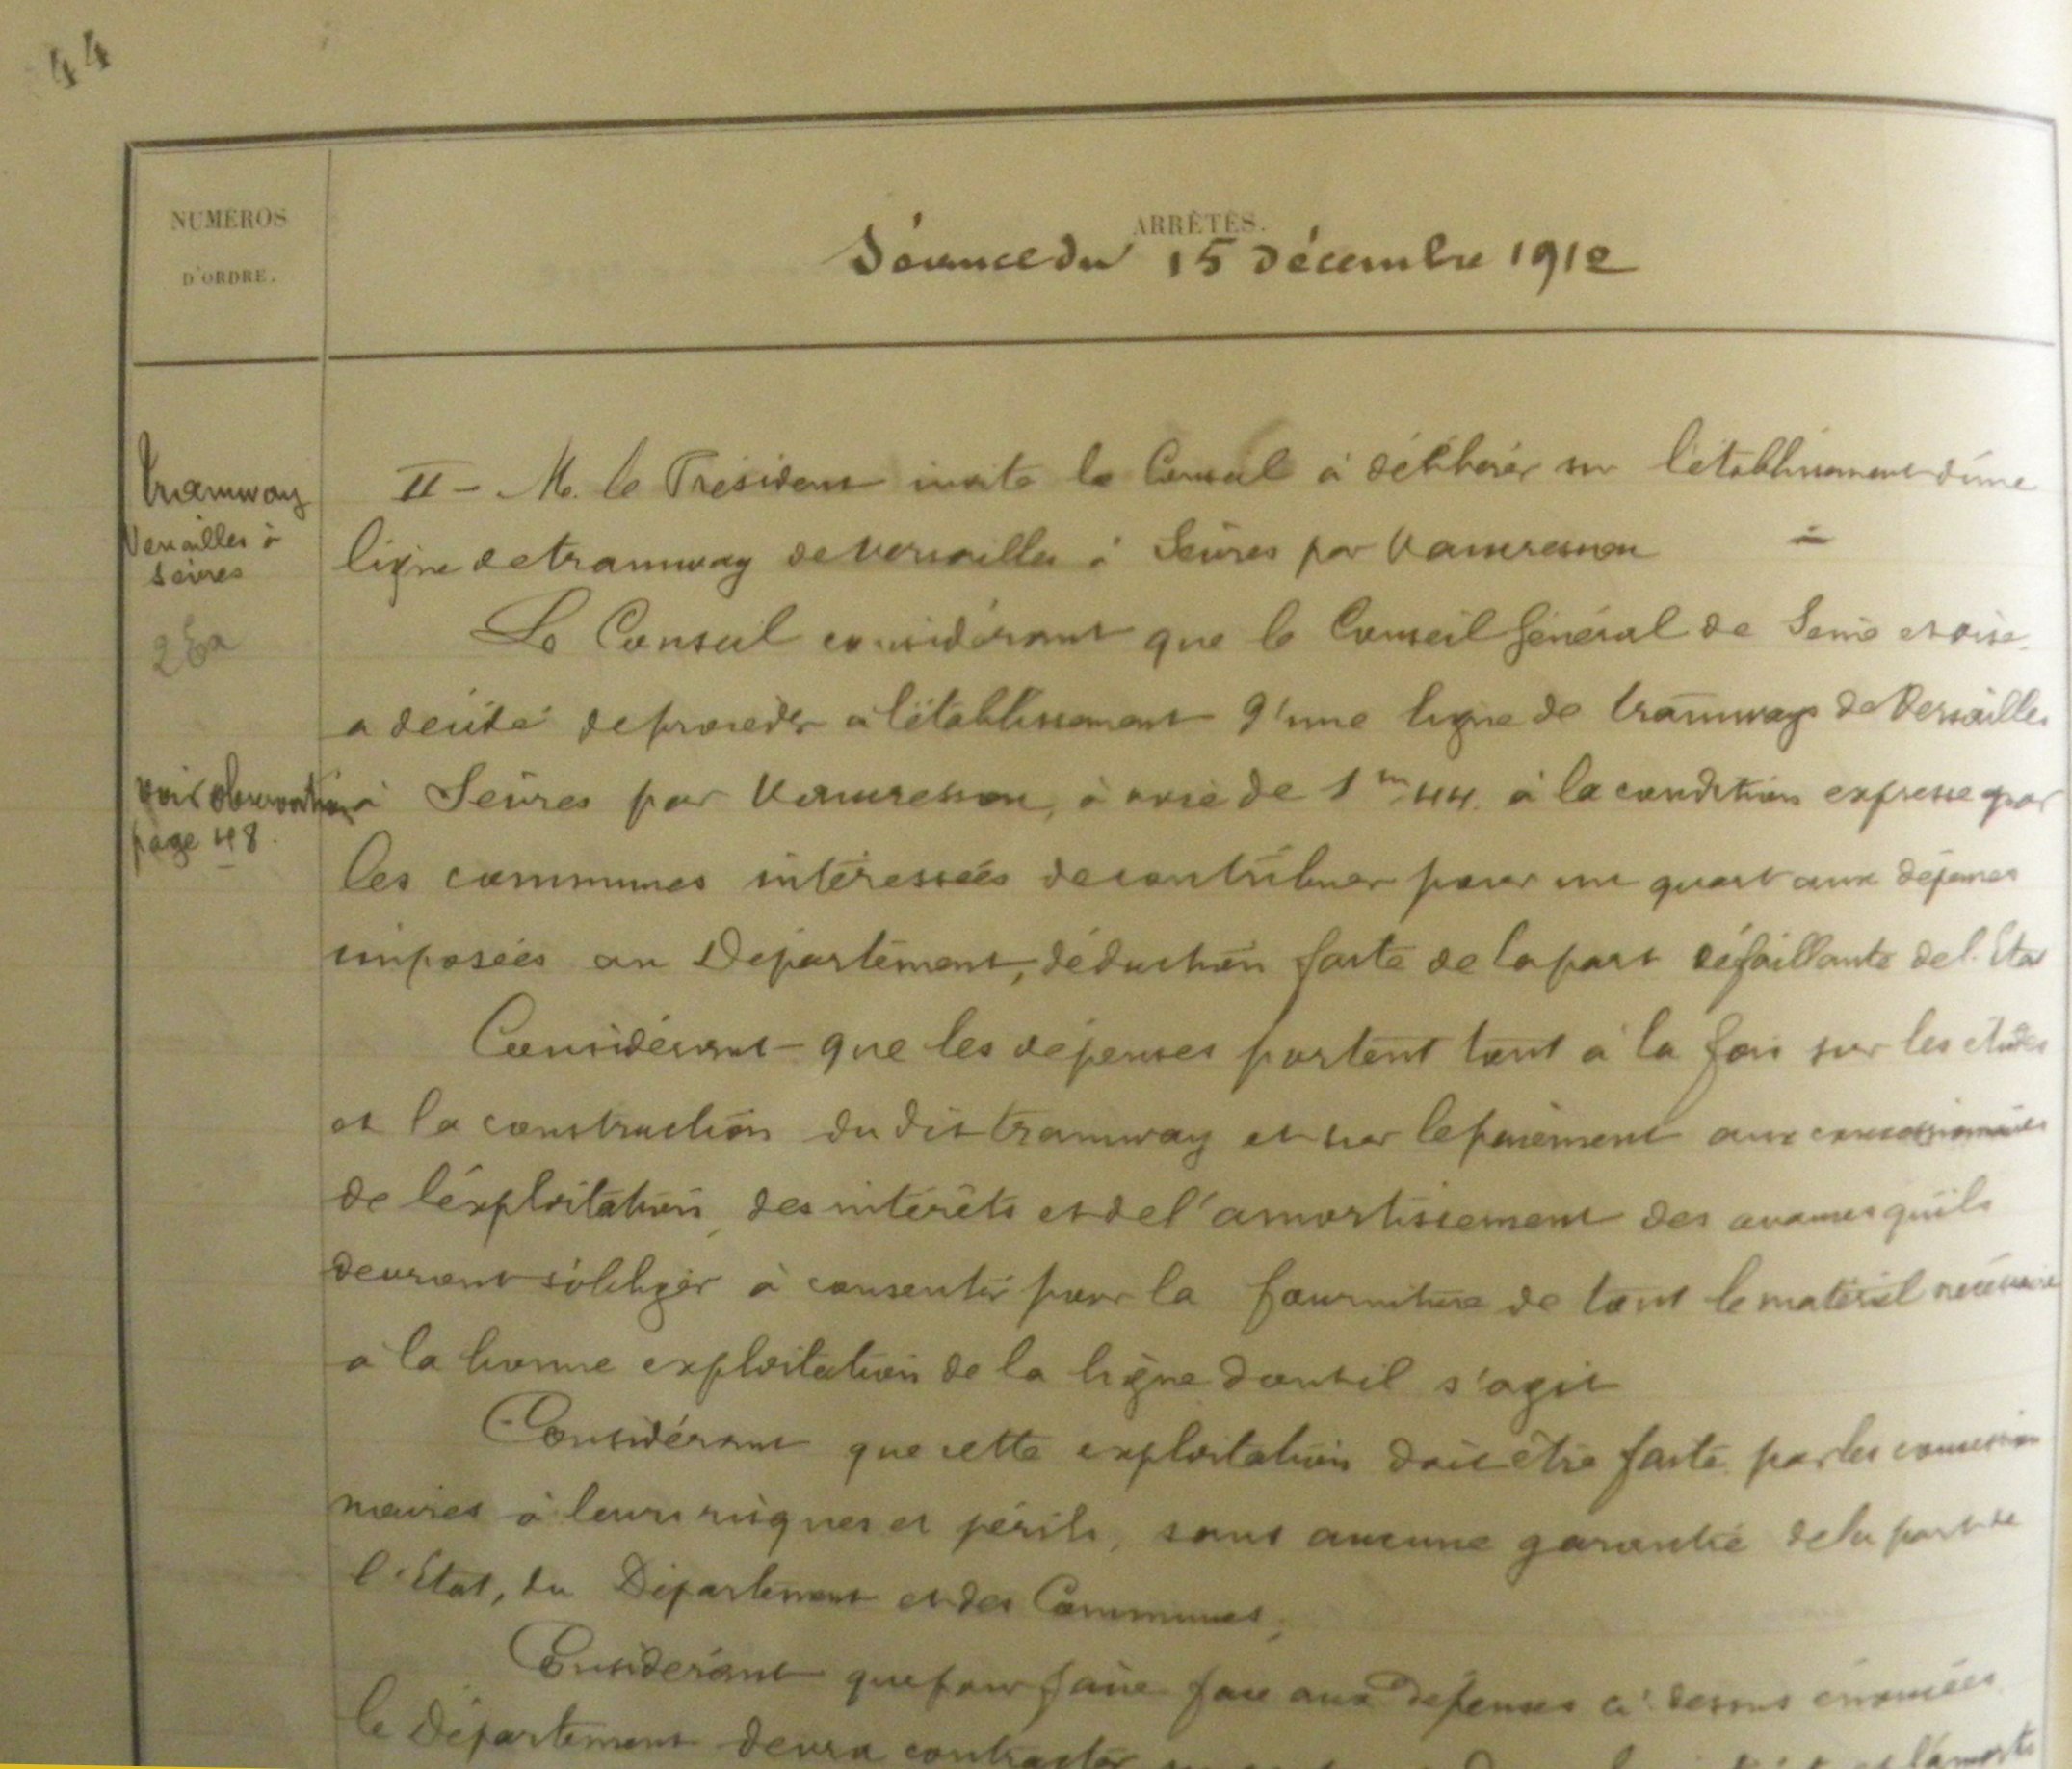 44
NUMÉROS
D'ORDRE.
ARRÊTÉS.
Séance du 15 décembre 1912
tramway
Versailles à
Sèvres
II - M. le Président invite le Conseil à délibérer sur l'établissement d'une
ligne de tramway de Versailles à Sèvres par Vaucresson
Le Conseil considérant que le Conseil Général de Seine et Oise
a décidé de procéder à l'établissement d'une ligne de tramways de Versailles
voir observation
page 48.
à Sèvres par Vaucresson, à voie de 1m44. à la condition expresse par
les communes intéressées de contribuer pour un quart aux dépenses
imposées au Département, déduction faite de la part défaillante de l'Etat
Considérant que les dépenses portent tant à la fois sur les études
et la construction dudit tramway et sur le paiement aux concessionnaires
de l'exploitation, des intérêts et de l'amortissement des avances qu'ils
devront s'obliger à consentir pour la fourniture de tout le matériel nécessaire
à la bonne exploitation de la ligne dont il s'agit
Considérant que cette exploitation doit être faite par les concession
naires à leurs risques et périls, sans aucune garantie de la part de
l'Etat, du Département et des Communes,
Considérant que pour faire face aux dépenses ci-dessus énoncées
le Département devra contracter